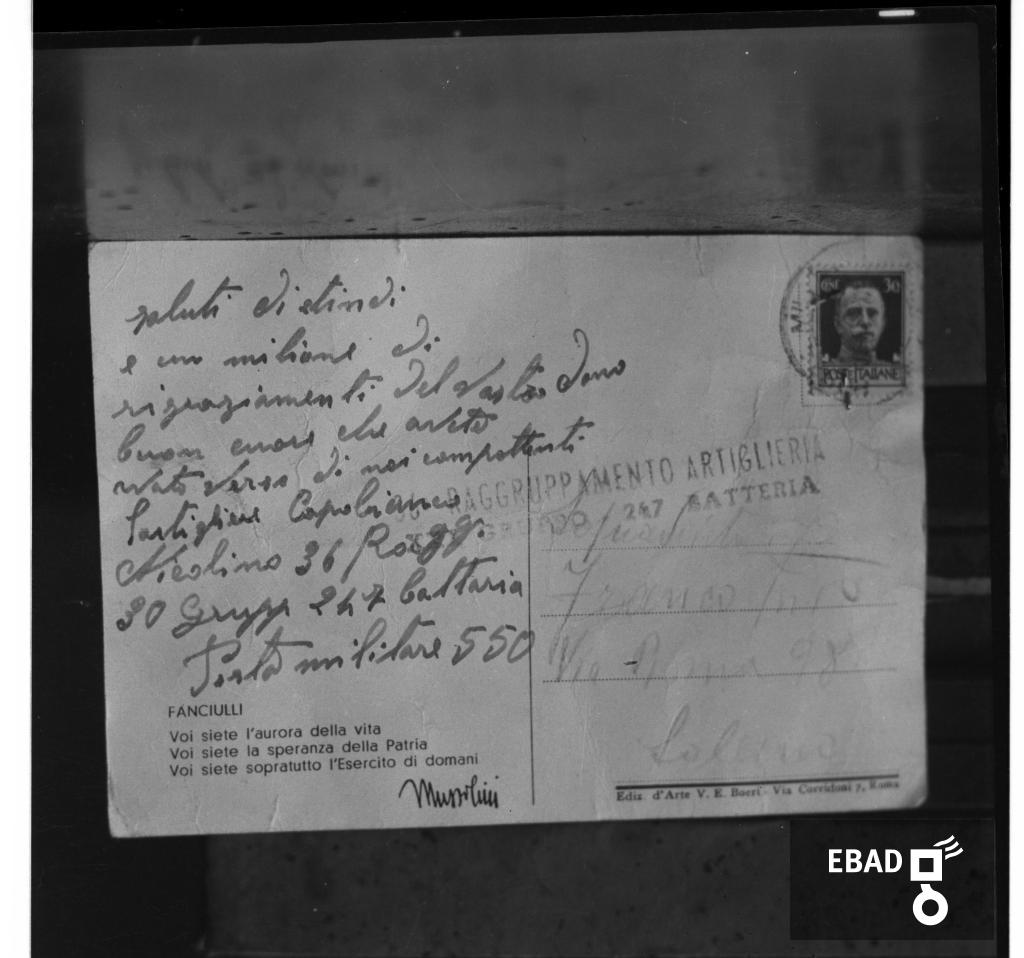 saluti di stindi
e un milione di
rigraziamenti del Vostro dono
buon cuore che avete
verso di noi compattenti
l'artigliere Capobianco
Nicolino 36 Ragg.
30 Grupp 247 battaria
Posta militare 550
FANCIULLI
Voi siete l'aurora della vita
Voi siete la speranza della Patria
Voi siete sopratutto l'Esercito di domani
Mussolini
CENT 30
POSTE ITALIANE
RAGGRUPPAMENTO ARTIGLIERIA
GRUPPO 247 BATTERIA
Franco
Via Roma 98
Ediz. d'Arte V. E. Boeri - Via Corridoni 7, Roma
EBAD